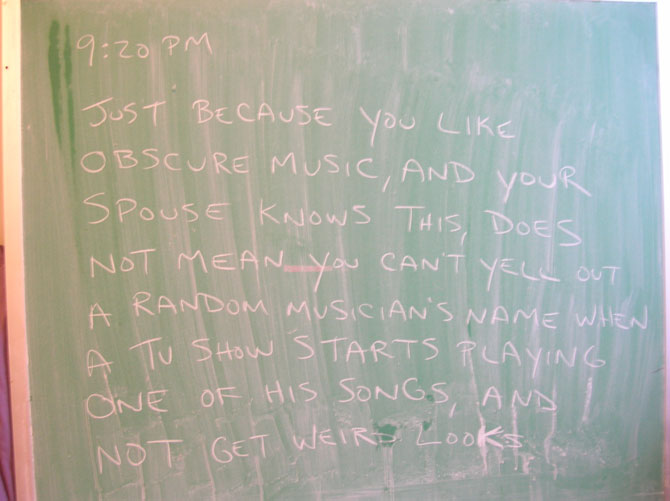 9:20 PM
JUST BECAUSE YOU LIKE
OBSCURE MUSIC, AND YOUR
SPOUSE KNOWS THIS, DOES
NOT MEAN YOU CAN'T YELL OUT
A RANDOM MUSICIAN'S NAME WHEN
A TV SHOW STARTS PLAYING
ONE OF HIS SONGS, AND
NOT GET WEIRD LOOKS